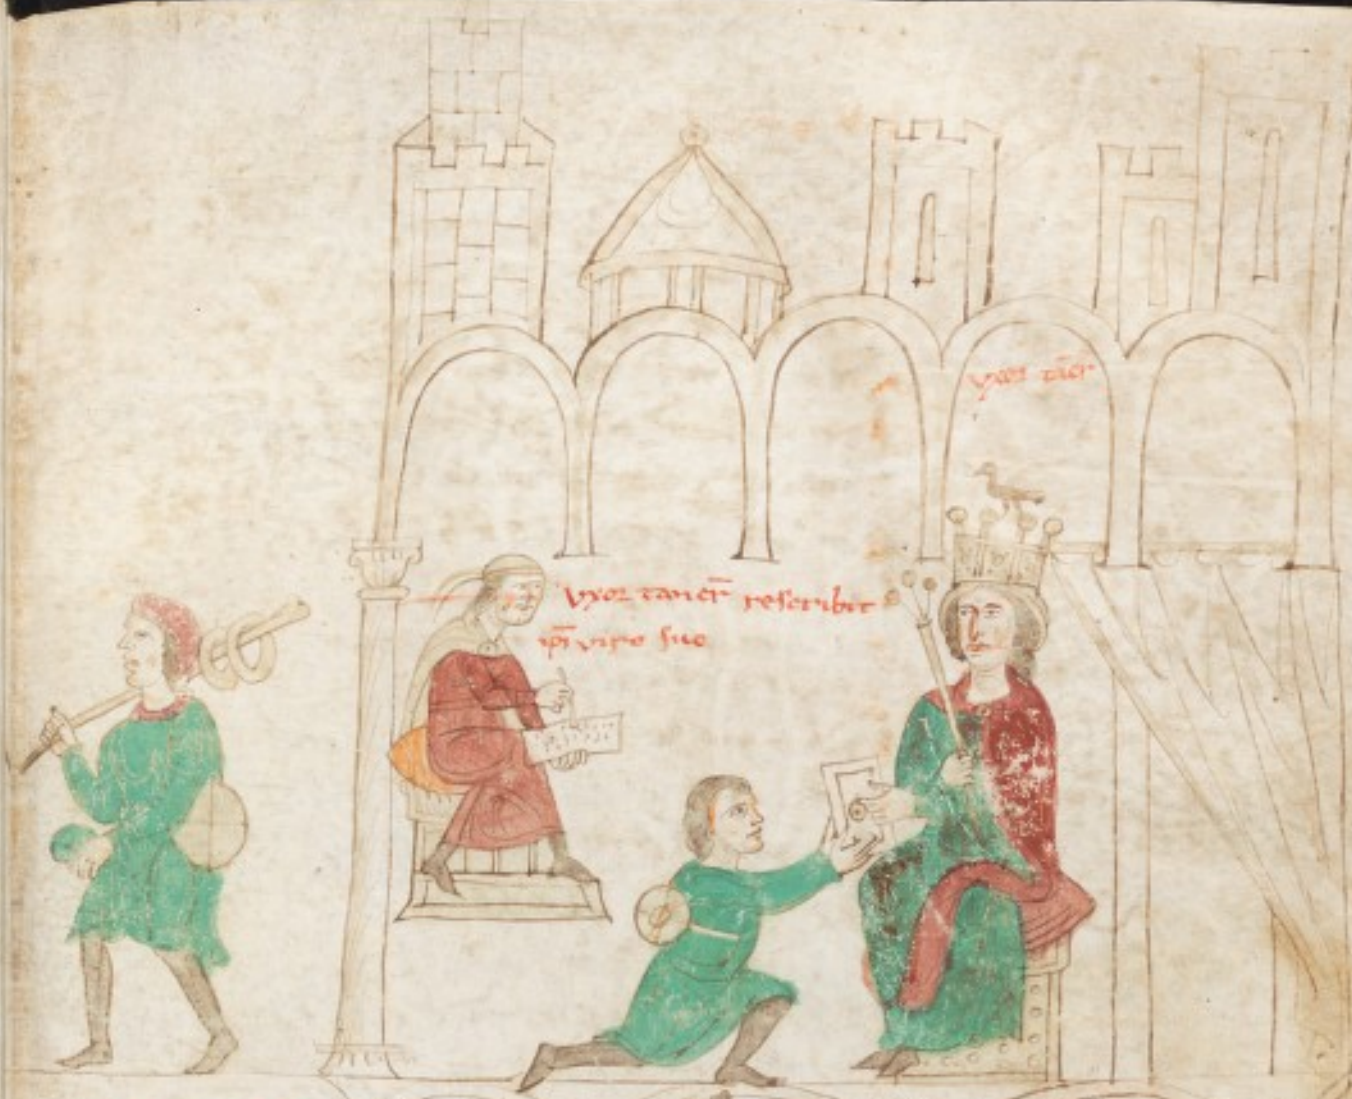 uxor tācr̄
Uxor tancr̄ rescribit
ip̄i viro suo